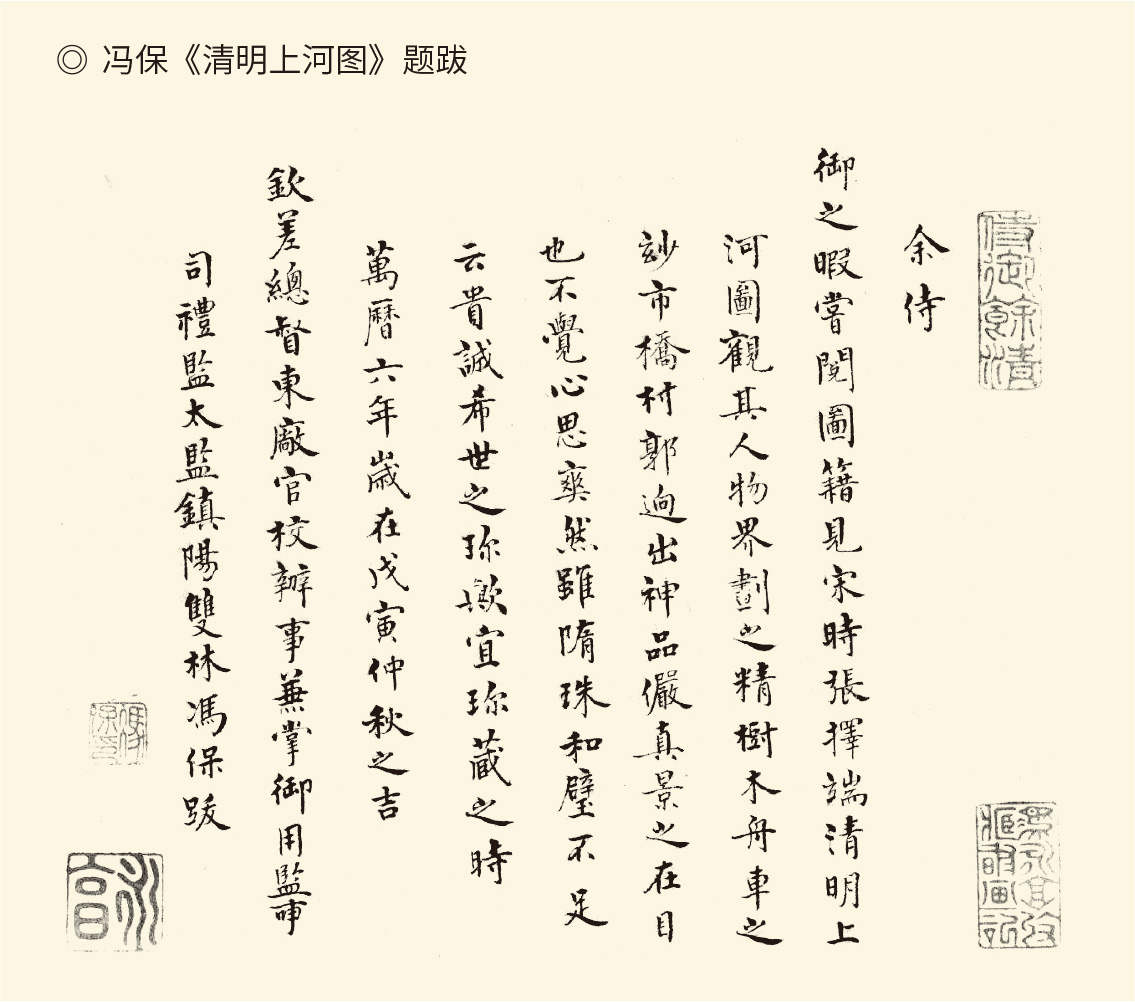 ◎ 冯保《清明上河图》题跋
余侍
御之暇嘗閱圖籍見宋時張擇端清明上
河圖觀其人物界劃之精樹木舟車之
玅市橋村郭迥出神品儼真景之在目
也不覺心思爽然雖隋珠和璧不足
云貴誠希世之珎歟宜珎藏之時
萬曆六年歲在戊寅仲秋之吉
欽差總督東廠官校辦事兼掌御用監事
司禮監太監鎮陽雙林馮保跋